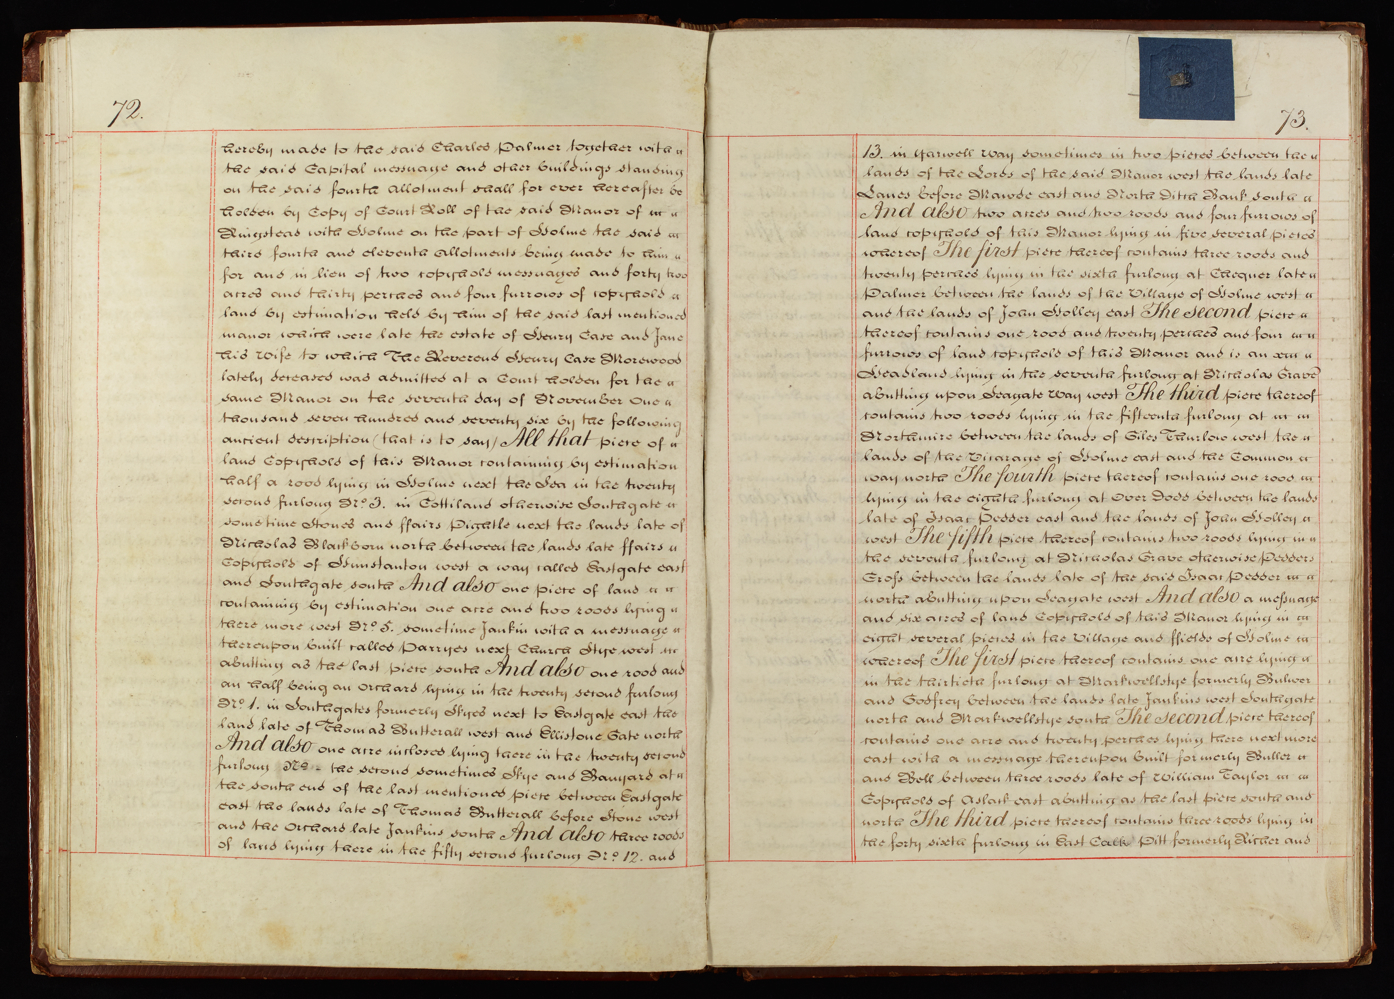 72.
hereby made to the said Charles Palmer together with
the said Capital messuage and other buildings standing
on the said fourth Allotment shall for ever hereafter be
holden by Copy of Court Roll of the said Manor of
Ringstead with Holme on the part of Holme the said
third fourth and eleventh Allotments being made to him
for and in lieu of two copyhold messuages and forty two
acres and thirty perches and four furrows of copyhold
land by estimation held by him of the said last mentioned
manor which were late the estate of Henry Case and Jane
his Wife to which The Reverend Henry Case Morewood
lately deceased was admitted at a Court holden for the
same Manor on the seventh day of November One
thousand seven hundred and seventy six by the following
ancient description (that is to say) All that piece of
land Copyhold of this Manor containing by estimation
half a rood lying in Holme next the Sea in the twenty
second furlong No. 3. in Cottiland otherwise Southgate
sometime Stones and ffairs Pightle next the lands late of
Nicholas Blackborn north between the lands late ffairs
Copyhold of Hunstanton west a way called Eastgate east
and Southgate south And also one piece of land
containing by estimation one acre and two roods lying
there more west No. 5. sometime Jankin with a messuage
thereupon built called Parryes next Church Stye west
abutting as the last piece south And also one rood and
an half being an Orchard lying in the twenty second furlong
No. 1. in Southgates formerly Skyes next to Eastgate east the
land late of Thomas Butterall west and Ellistone Gate north
And also one acre inclosed lying there in the twenty second
furlong No. - the second sometimes Skye and Banyard at
the south end of the last mentioned piece between Eastgate
east the lands late of Thomas Butterall before Stone west
and the Orchard late Jankins south And also three roods
of land lying there in the fifty second furlong No. 12. and
73.
13. in Yarwell Way sometimes in two pieces between the
lands of the Lords of the said Manor west the lands late
Lanes before Mawde east and North Ditch Bank south
And also two acres and two roods and four furrows of
land copyhold of this Manor lying in five several pieces
whereof The first piece thereof contains three roods and
twenty perches lying in the sixth furlong at Chequer late
Palmer between the lands of the Village of Holme west
and the lands of John Holley east The second piece
thereof contains one rood and twenty perches and four
furrows of land copyhold of this Manor and is an
Headland lying in the seventh furlong at Nicholas Grave
abutting upon Seagate Way west The third piece thereof
contains two roods lying in the fifteenth furlong at
Northmire between the lands of Giles Thurlow west the
lands of the Vicarage of Holme east and the Common
way north The fourth piece thereof contains one rood
lying in the eighth furlong at Over Dods between the lands
late of Isaac Pedder east and the lands of John Holley
west The fifth piece thereof contains two roods lying in
the seventh furlong at Nicholas Grave otherwise Pedders
Cross between the lands late of the said Isaac Pedder
north abutting upon Seagate west And also a messuage
and six acres of land Copyhold of this Manor lying in
eight several pieces in the Village and ffields of Holme
whereof The first piece thereof contains one acre lying
in the thirtieth furlong at Markwellstye formerly Bulwer
and Godfrey between the lands late Jankins west Southgate
north and Markwellstye south The second piece thereof
contains one acre and twenty perches lying there next more
east with a messuage thereupon built formerly Buller
and Bell between three roods late of William Taylor
Copyhold of Aslack east abutting as the last piece south and
north The third piece thereof contains three roods lying in
the forty sixth furlong in East Cock Pitt formerly Richer and